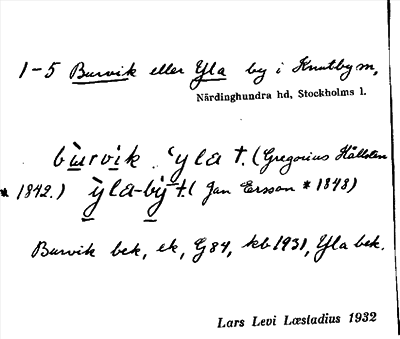 1-5 Burvik eller Yla by i Knutby sn,
Närdinghundra hd, Stockholms l.
bùrvik ‘yla t. (Gregorius Hållsten
* 1842.) ỳla-bỳ t. ( Jan Ersson * 1848)
Burvik bek, ek, G84, kb 1931, Yla bek.
Lars Levi Læstadius 1932